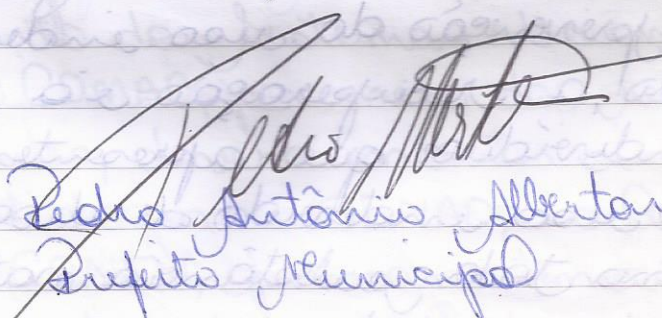 Pedro
Pedro Antônio Albertan
Prefeito Municipal